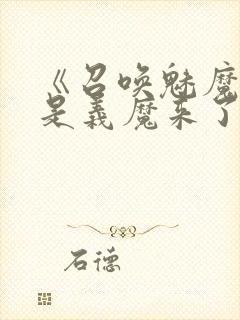 《召唤魅魔
是义魔来了
石德